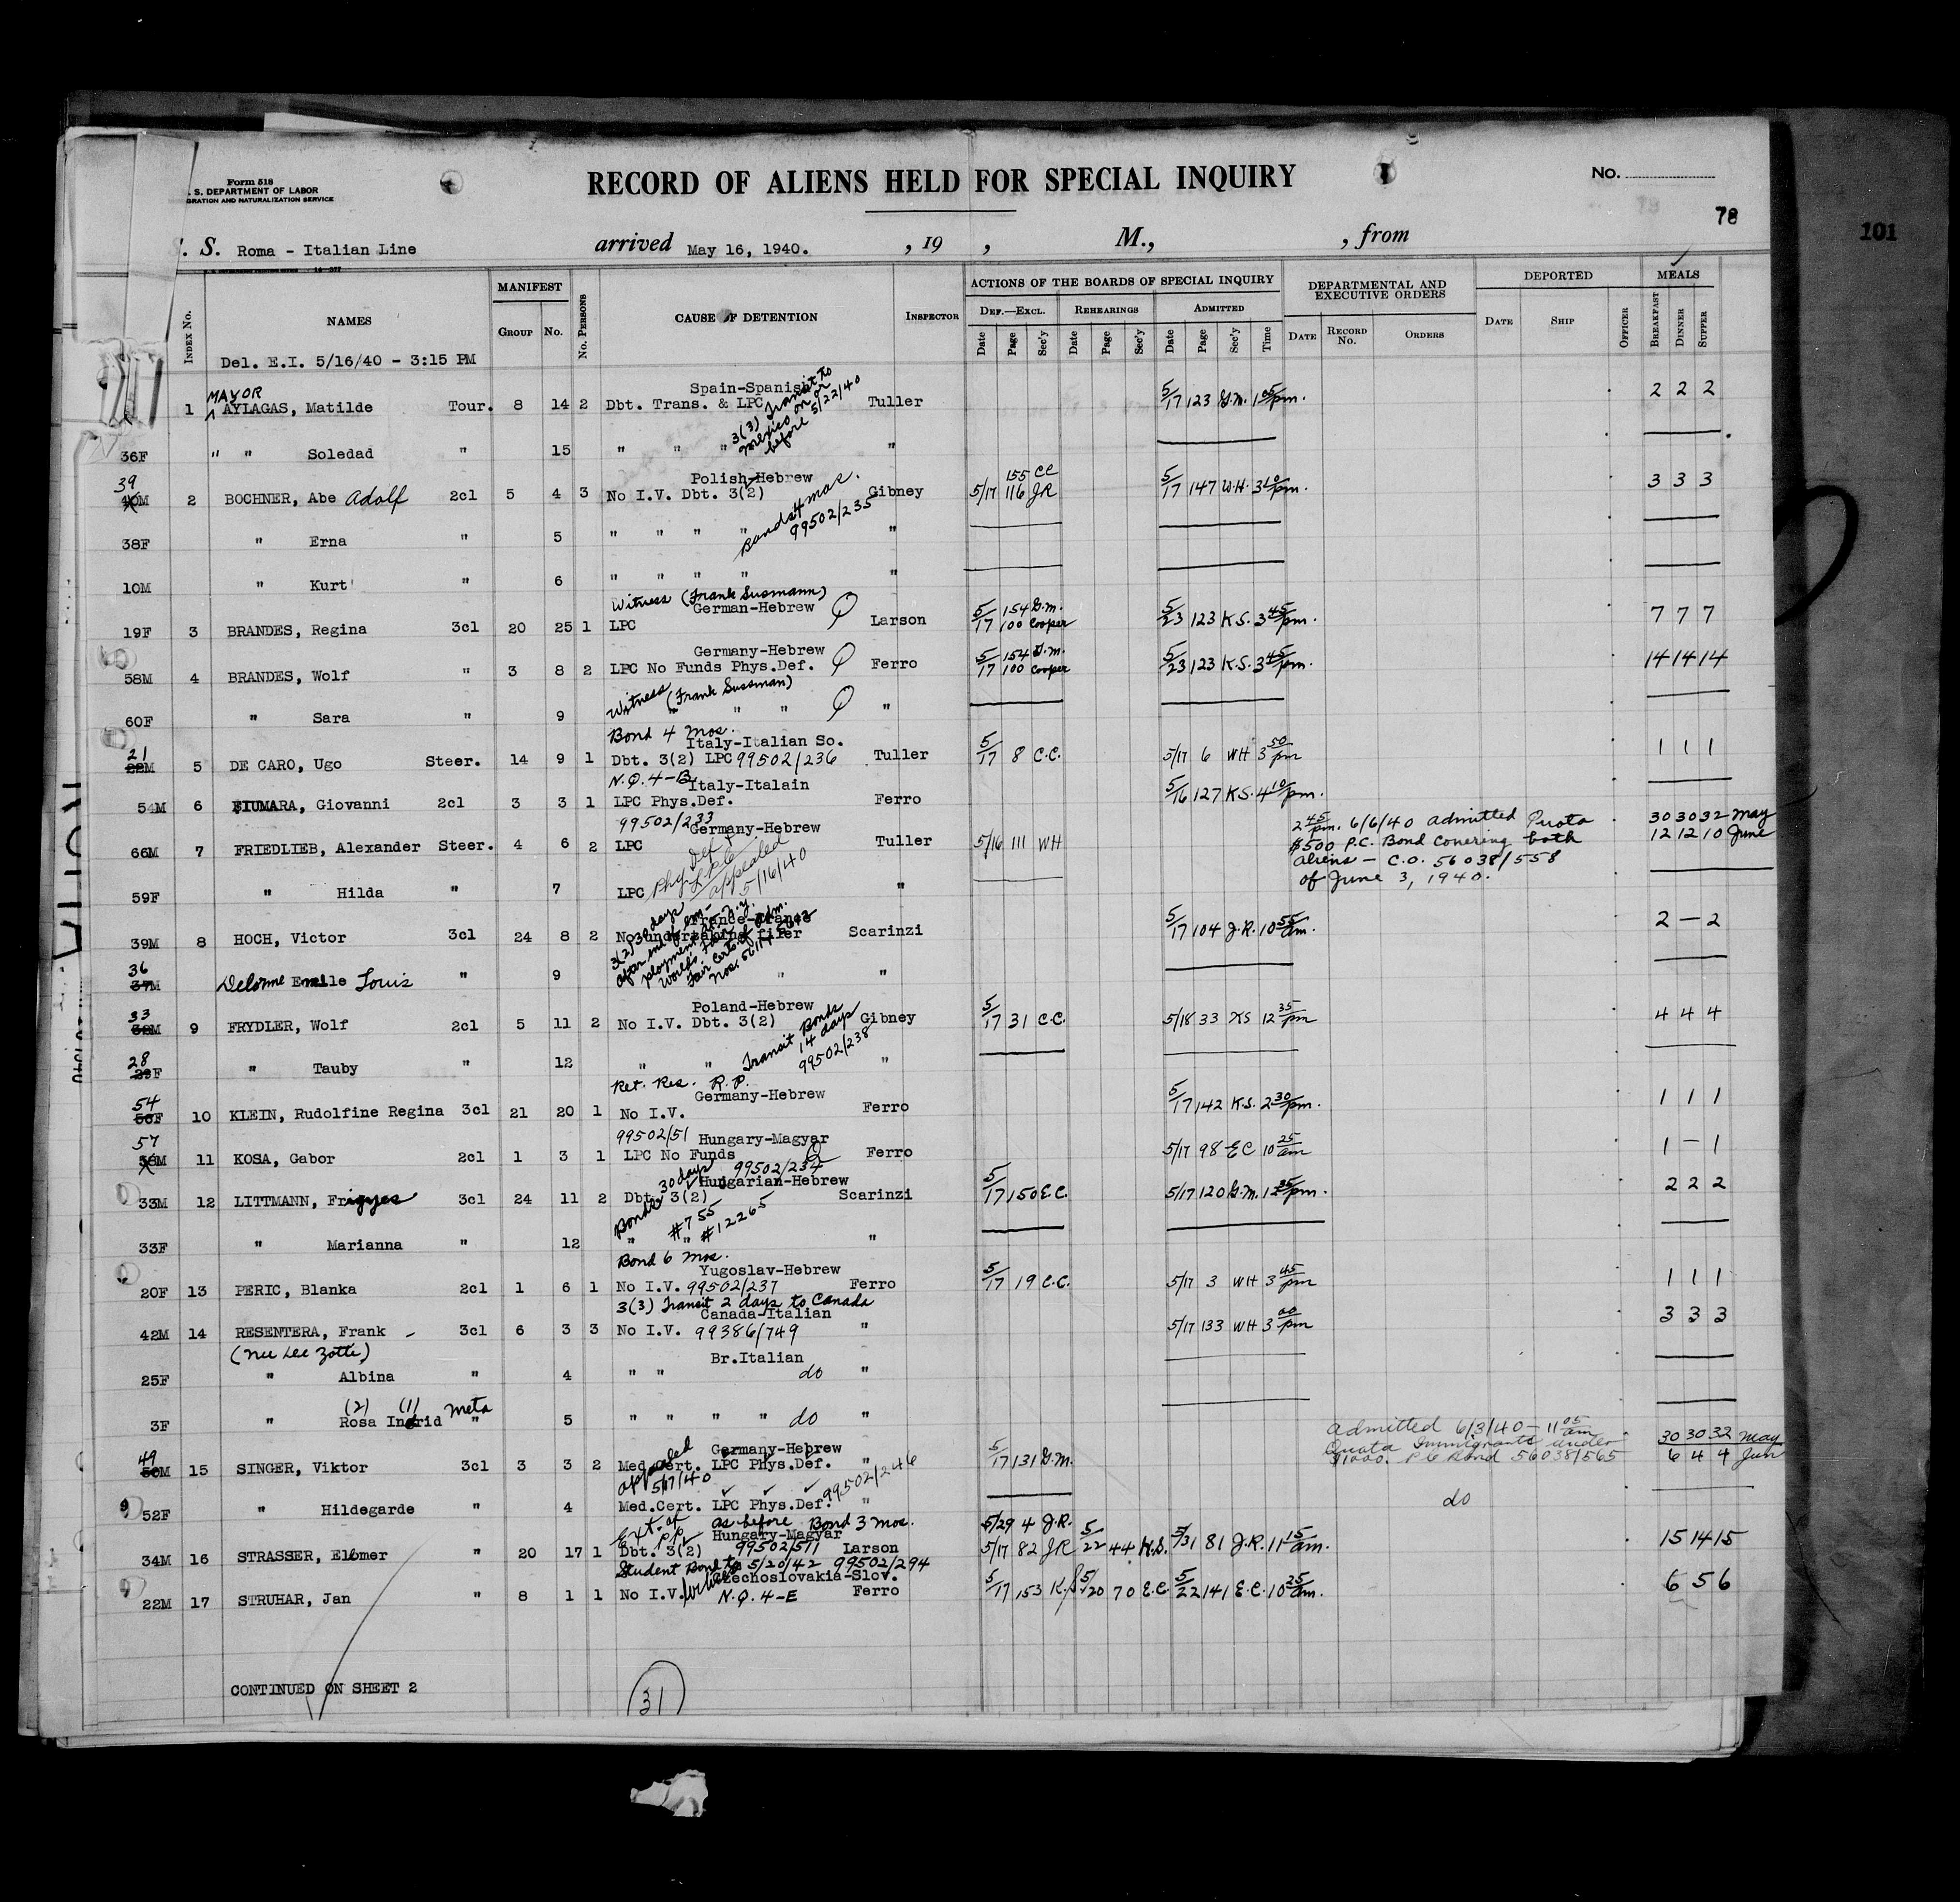 Form 518
. S. DEPARTMENT OF LABOR
GRATION AND NATURALIZATION SERVICE
RECORD OF ALIENS HELD FOR SPECIAL INQUIRY
No.
78
101
. S. Roma - Italian Line arrived May 16, 1940. , 19 , M., , from
INDEX No. NAMES MANIFEST GROUP No. No. PERSONS CAUSE OF DETENTION INSPECTOR
ACTIONS OF THE BOARDS OF SPECIAL INQUIRY DEPARTMENTAL AND EXECUTIVE ORDERS DEPORTED MEALS
DEF.—EXCL. REHEARINGS ADMITTED
Date Page Sec'y Date Page Sec'y Date Page Sec'y Time DATE RECORD No. ORDERS DATE SHIP OFFICER BREAKFAST DINNER SUPPER
Del. E.I. 5/16/40 - 3:15 PM
MAYOR Spain-Spanish
1 AYLAGAS, Matilde Tour. 8 14 2 Dbt. Trans. & LPC Tuller 5/17 123 G.M. 1 05/pm. 2 2 2
3(3) Transit to Mexico on or before 5/22/40
36F " " Soledad " 15 " " " "
39 Polish-Hebrew 155 CC
40M 2 BOCHNER, Abe Adolf 2cl 5 4 3 No I.V. Dbt. 3(2) Gibney 5/17 116 JR 5/17 147 W.H. 3 10/pm. 3 3 3
Bonds 4 mos. 99502/235
38F " Erna " 5 " " " " "
10M " Kurt " 6 " " " " "
Witness (Frank Susmann)
German-Hebrew 154 G.M.
19F 3 BRANDES, Regina 3cl 20 25 1 LPC Larson 5/17 100 Cooper 5/23 123 K.S. 3 45/pm. 7 7 7
Germany-Hebrew 154 G.M.
58M 4 BRANDES, Wolf " 3 8 2 LPC No Funds Phys.Def. Ferro 5/17 100 Cooper 5/23 123 K.S. 3 45/pm. 14 14 14
Witness (Frank Sussman)
60F " Sara " 9 " " " "
Bond 4 mos.
21 Italy-Italian So.
22M 5 DE CARO, Ugo Steer. 14 9 1 Dbt. 3(2) LPC 99502/236 Tuller 5/17 8 C.C. 5/17 6 WH 3 50/pm 1 1 1
N.Q. 4-B Italy-Italain
54M 6 FIUMARA, Giovanni 2cl 3 3 1 LPC Phys.Def. Ferro 5/16 127 K.S. 4 10/pm.
99502/233 Germany-Hebrew
66M 7 FRIEDLIEB, Alexander Steer. 4 6 2 LPC Tuller 5/16 111 WH
2 45/pm. 6/6/40 admitted Quota
$500 P.C. Bond covering both
aliens — C.O. 56038/558
of June 3, 1940.
30 30 32 May
12 12 10 June
59F " Hilda " 7 LPC "
Phy. Def. & LPC appealed 5/16/40
France-France
39M 8 HOCH, Victor 3cl 24 8 2 No undertaking filer Scarinzi 5/17 104 J.R. 10 55/am. 2 — 2
3(2) 30 days after end of employment at N.Y. World's Fair
36
37M Delorme Emile Louis " 9 " "
33 Poland-Hebrew
32M 9 FRYDLER, Wolf 2cl 5 11 2 No I.V. Dbt. 3(2) Gibney 5/17 31 C.C. 5/18 33 KS 12 35/pm 4 4 4
Transit Bonds 14 days 99502/238
28
29F " Tauby " 12 " " "
Ret. Res. R.P.
54 Germany-Hebrew
56F 10 KLEIN, Rudolfine Regina 3cl 21 20 1 No I.V. Ferro 5/17 142 K.S. 2 30/pm. 1 1 1
57 99502/51 Hungary-Magyar
58M 11 KOSA, Gabor 2cl 1 3 1 LPC No Funds Ferro 5/17 98 EC 10 25/am 1 — 1
30 days 99502/234
Hungarian-Hebrew
33M 12 LITTMANN, Frigyes 3cl 24 11 2 Dbt. 3(2) Scarinzi 5/17 150 E.C. 5/17 120 G.M. 12 35/pm. 2 2 2
Bonds #755 #12265
33F " Marianna " 12 " " "
Bond 6 mos.
Yugoslav-Hebrew
20F 13 PERIC, Blanka 2cl 1 6 1 No I.V. 99502/237 Ferro 5/17 19 C.C. 5/17 3 WH 3 45/pm 1 1 1
3(3) Transit 2 days to Canada
Canada-Italian
42M 14 RESENTERA, Frank 3cl 6 3 3 No I.V. 99386/749 " 5/17 133 WH 3 00/pm 3 3 3
(nee Lee Zotte) Br.Italian
25F " Albina " 4 " " do "
(2) (1) Meta
3F " Rosa Ingrid " 5 " " " " do "
Admitted 6/3/40 — 11 05/am
Quota Immigrants under
$1000. P.C. Bond 56038/565
49 Germany-Hebrew
50M 15 SINGER, Viktor 3cl 3 3 2 Med.Cert. LPC Phys.Def. " 5/17 131 G.M. 30 30 32 May
6 4 4 Jun
appealed 5/17/40 99502/246
52F " Hildegarde " 4 Med.Cert. LPC Phys.Def. " do
Ext. of P.P. as before Bond 3 mos. 5/29 4 J.R.
Hungary-Magyar 99502/511
34M 16 STRASSER, Elemer " 20 17 1 Dbt. 3(2) Larson 5/17 82 JR 5/22 44 H.S. 5/31 81 J.R. 11 15/am. 15 14 15
Student Bond to 5/20/42 99502/294
Czechoslovakia-Slov.
22M 17 STRUHAR, Jan " 8 1 1 No I.V. N.Q. 4-E Ferro 5/17 153 K.S. 5/20 70 E.C. 5/22 141 E.C. 10 25/am. 6 5 6
CONTINUED ON SHEET 2
31